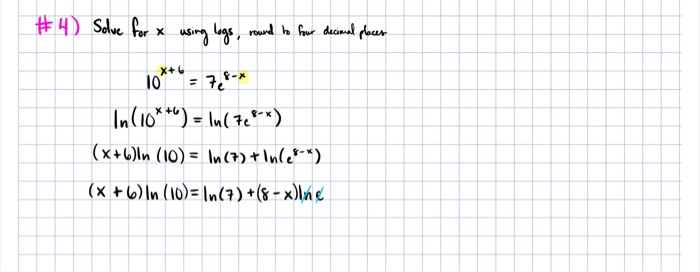 #4) Solve for x using logs, round to four decimal places
10^(x+6) = 7e^(8-x)
ln(10^(x+6)) = ln(7e^(8-x))
(x+6)ln(10) = ln(7) + ln(e^(8-x))
(x+6)ln(10) = ln(7) + (8-x)ln e